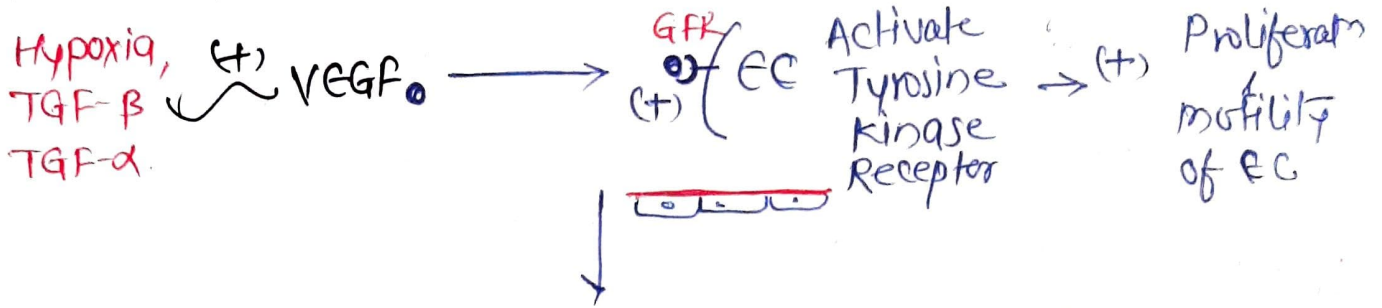 Hypoxia,
TGF-β
TGF-α.
(+)
VEGF
GFR
(+)
EC
Activate
Tyrosine
Kinase
Receptor
(+)
Proliferatn
&
motility
of EC